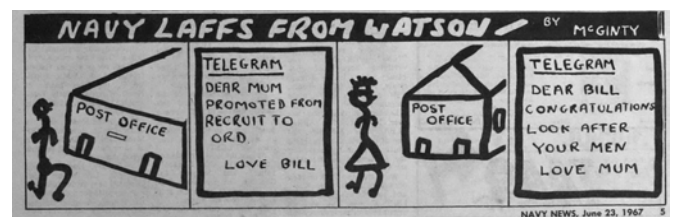 NAVY LAFFS FROM WATSON
BY
McGINTY
POST OFFICE
TELEGRAM
DEAR MUM
PROMOTED FROM
RECRUIT TO
ORD.
LOVE BILL
POST
OFFICE
TELEGRAM
DEAR BILL
CONGRATULATIONS
LOOK AFTER
YOUR MEN
LOVE MUM
NAVY NEWS, June 23, 1967 5